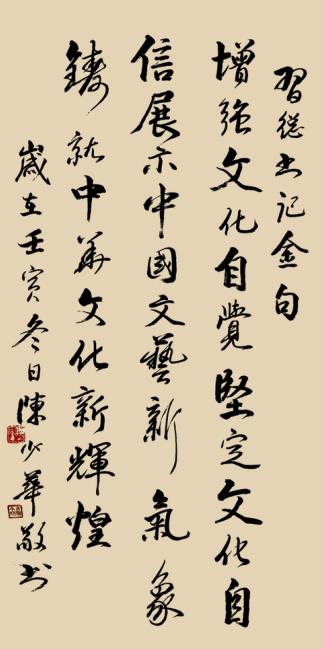 習總书記金句
增強文化自覺堅定文化自
信展示中國文藝新氣象
鑄就中華文化新輝煌
歲在壬寅冬日陳少華敬书